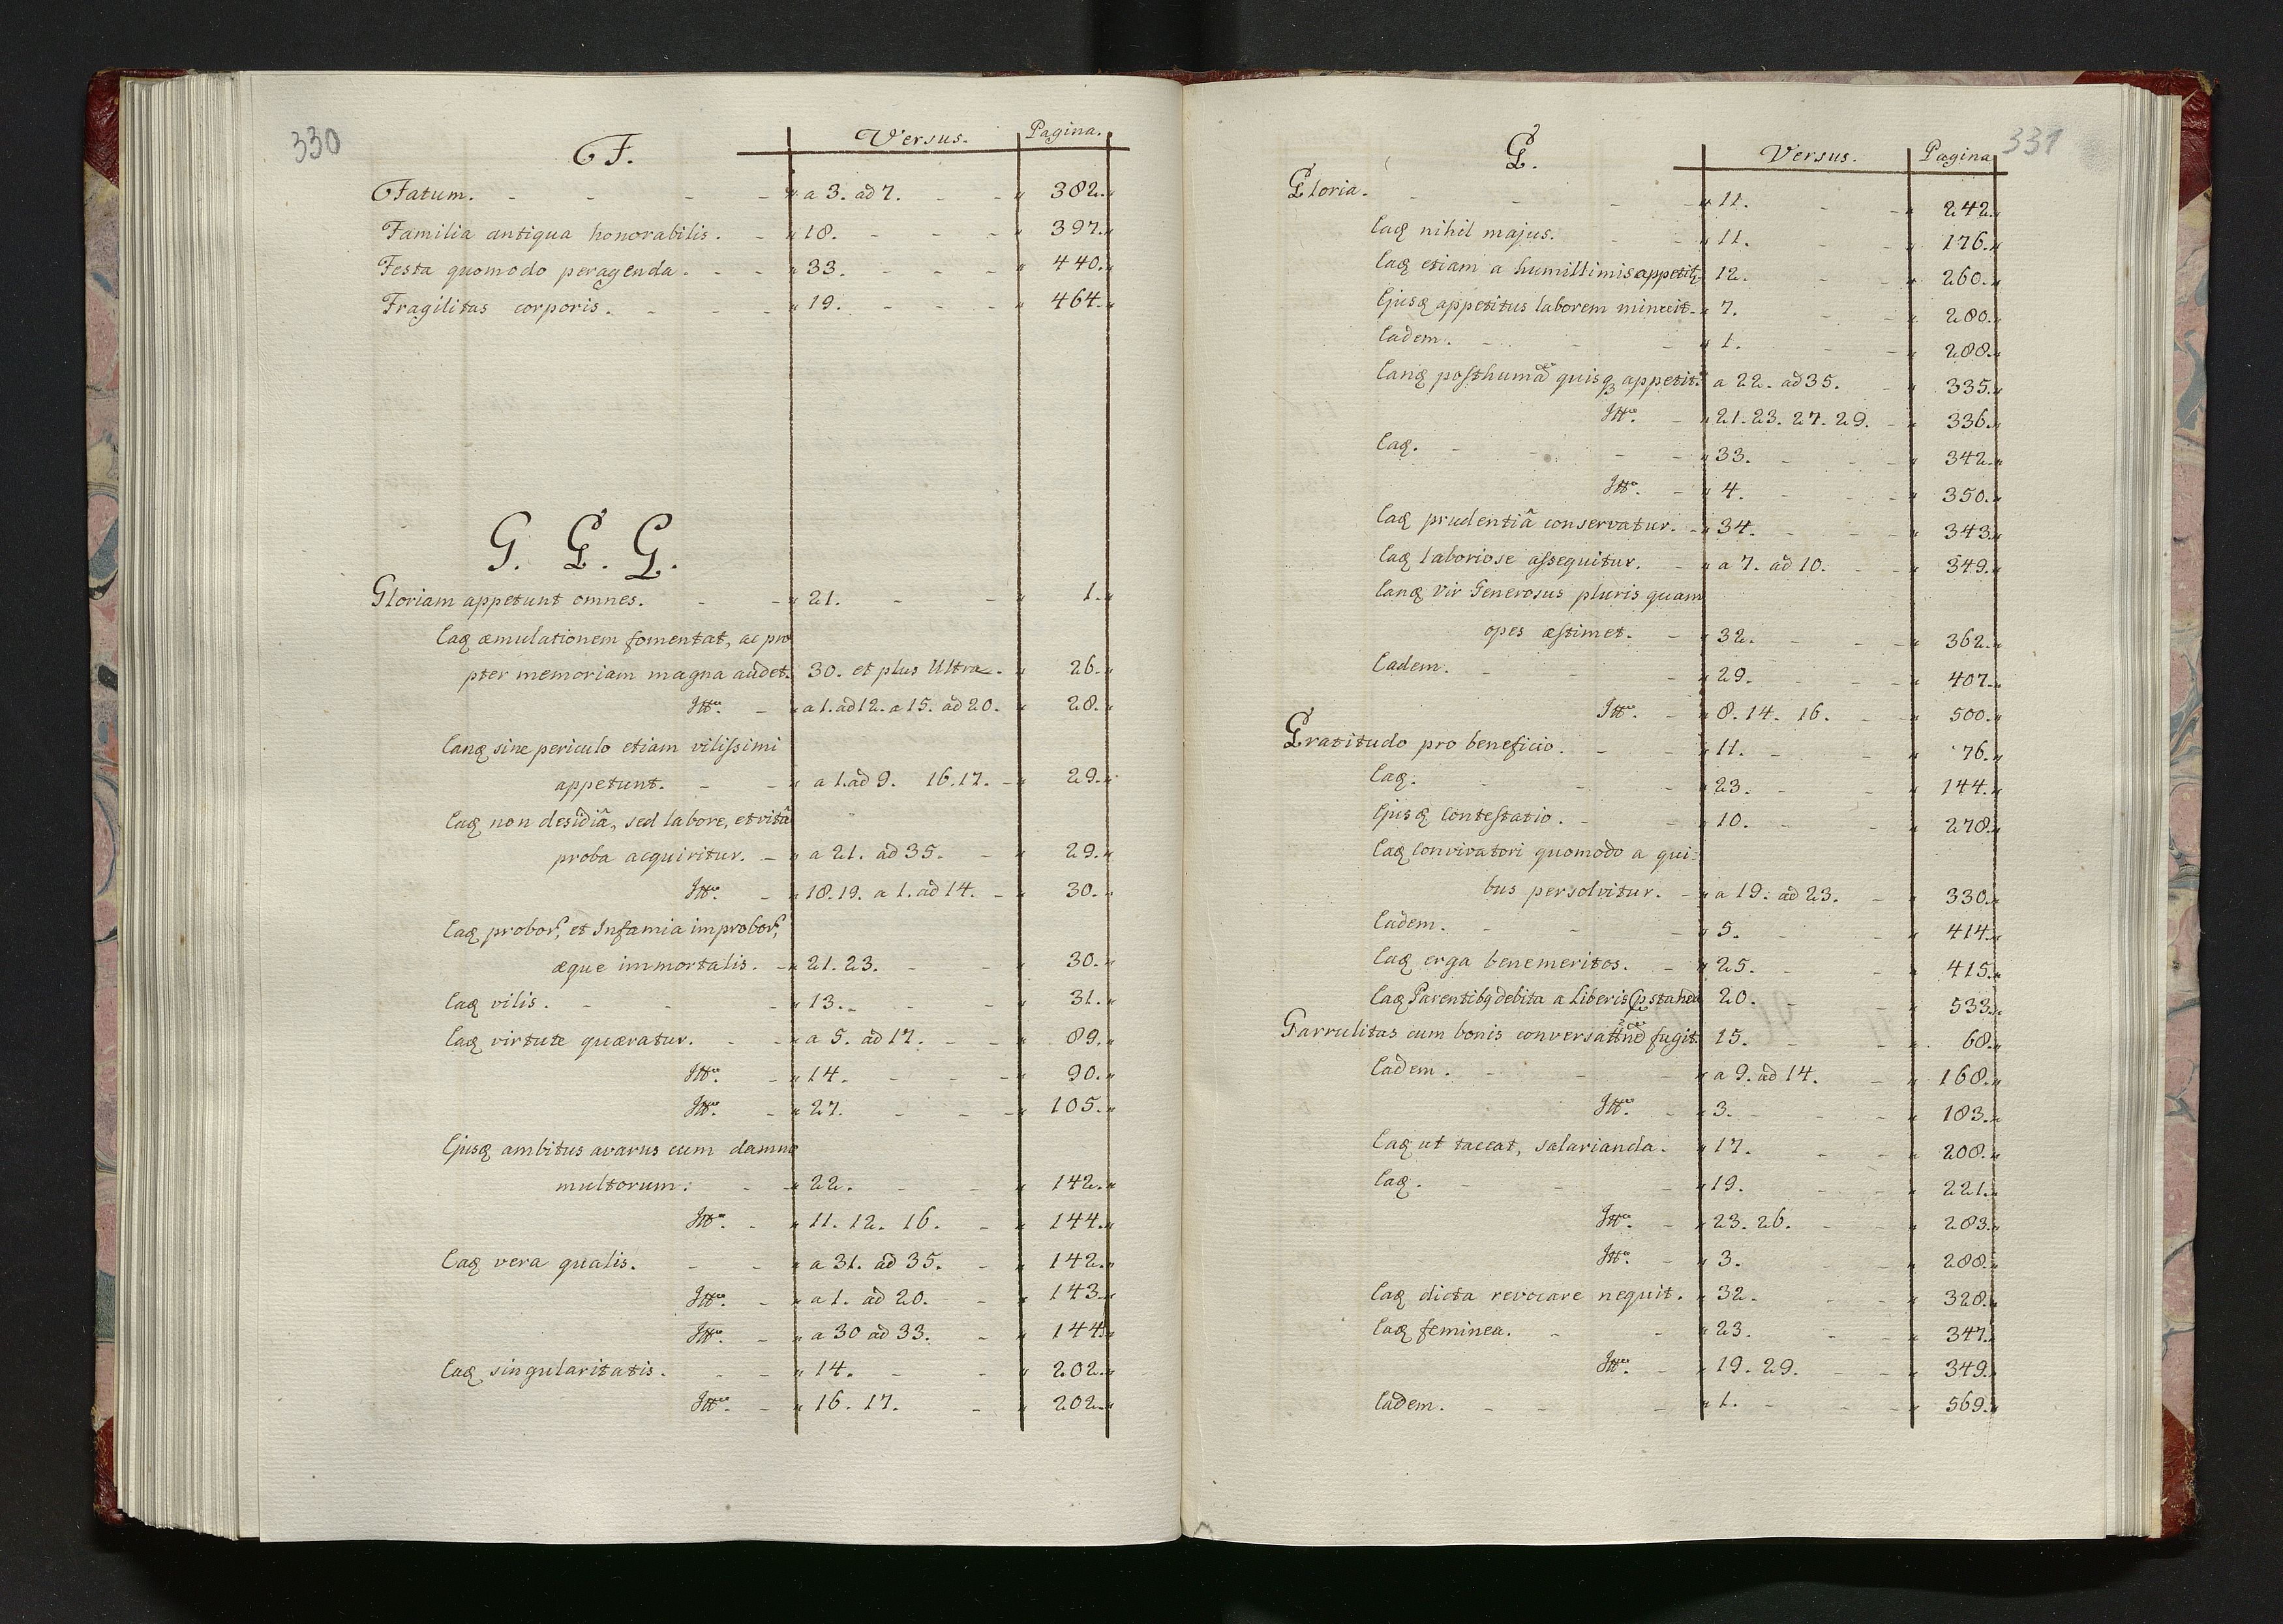 330
F. Versus. Pagina.
Fatum. - - - - " a 3. ad 7. - - " 382. "
Familia antiqua honorabilis. - " 18. - - - " 397. "
Festa quomodo peragenda. - - - " 33. - - - " 440. "
Fragilitas corporis. - - - " 19. - - - " 464. "
G. G. G.
Gloriam appetunt omnes. - - " 21. - - " 1. "
Eaq æmulationem fomentat, ac pro
pter memoriam magna audet. 30. et plus Ultra. " 26. "
Itto. - " a 1. ad 12. a 15. ad 20. " 28. "
Eanq sine periculo etiam vilissimi
appetunt. - - " a 1. ad 9. 16. 17. - " 29. "
Eaq non desidiâ, sed labore, et vitâ
proba acquiritur. - " a 21. ad 35. - " 29. "
Itto. - " 18. 19. a 1. ad 14. - " 30. "
Eaq probor, et Infamia improbor,
æque immortalis. - " 21. 23. - - " 30. "
Eaq vilis. - - - " 13. - - - " 31. "
Eaq virtute quæratur. - - " a 5. ad 17. - - " 89. "
Itto. - " 14. - - - " 90. "
Itto. - " 27. - - - " 105. "
Ejusq ambitus avarus cum damno
multorum: - - " 22. - - " 142. "
Itto. - " 11. 12. 16. - " 144. "
Eaq vera qualis. - - " a 31. ad 35. - " 142. "
Itto. - " a 1. ad 20. - " 143. "
Itto. - " a 30 ad 33. - " 144. "
Eaq singularitatis. - - " 14. - - " 202. "
Itto. - " 16. 17. - " 202. "
331
G. Versus. Pagina
Gloria. - - - - " 11. - - " 242. "
Eaq nihil majus. - - " 11. - " 176. "
Eaq etiam a humillimis appetitq 12. - " 260. "
Ejusq appetitus laborem minuit. " 7. - " 280. "
Eadem. - - - " 1. - - " 288. "
Eanq posthumâ quisq appetit. " a 22. ad 35. - " 335. "
Itto. - " 21. 23. 27. 29. - " 336. "
Eaq. - - - " 33. - - " 342. "
Itto. - " 4. - - " 350. "
Eaq prudentiâ conservatur. - " 34. - - " 343. "
Eaq laboriose assequitur. - " a 7. ad 10. - " 349. "
Eanq Vir Generosus pluris quam
opes æstimet. - " 32. - - " 362. "
Eadem. - - " 29. - - " 407. "
Itto. - " 8. 14. 16. - " 500. "
Gratitudo pro beneficio. - - " 11. - - " 76. "
Eaq. - - - " 23. - - " 144. "
Ejusq Contestatio. - - " 10. - - " 278. "
Eaq Convivatori quomodo a qui:
bus persolvitur. - " a 19. ad 23. - " 330. "
Eadem. - - - " 5. - - " 414. "
Eaq erga benemeritos. - " 25. - - " 415. "
Eaq Parentibq debita a Liberis pstanda 20. - - " 533. "
Garrulitas cum bonis conversattne fugit. 15. - - " 68. "
Eadem. - - - " a 9. ad 14. - " 168. "
Itto. - " 3. - - " 183. "
Eaq ut taceat, salarianda. " 17. - - " 208. "
Eaq. - - - " 19. - - " 221. "
Itto. - " 23. 26. - - " 283. "
Itto. - " 3. - - " 288. "
Eaq dicta revocare nequit. " 32. - - " 328. "
Eaq feminea. - - " 23. - - " 347. "
Itto. - " 19. 29. - - " 349. "
Eadem. - - - " 1. - - - " 569. "